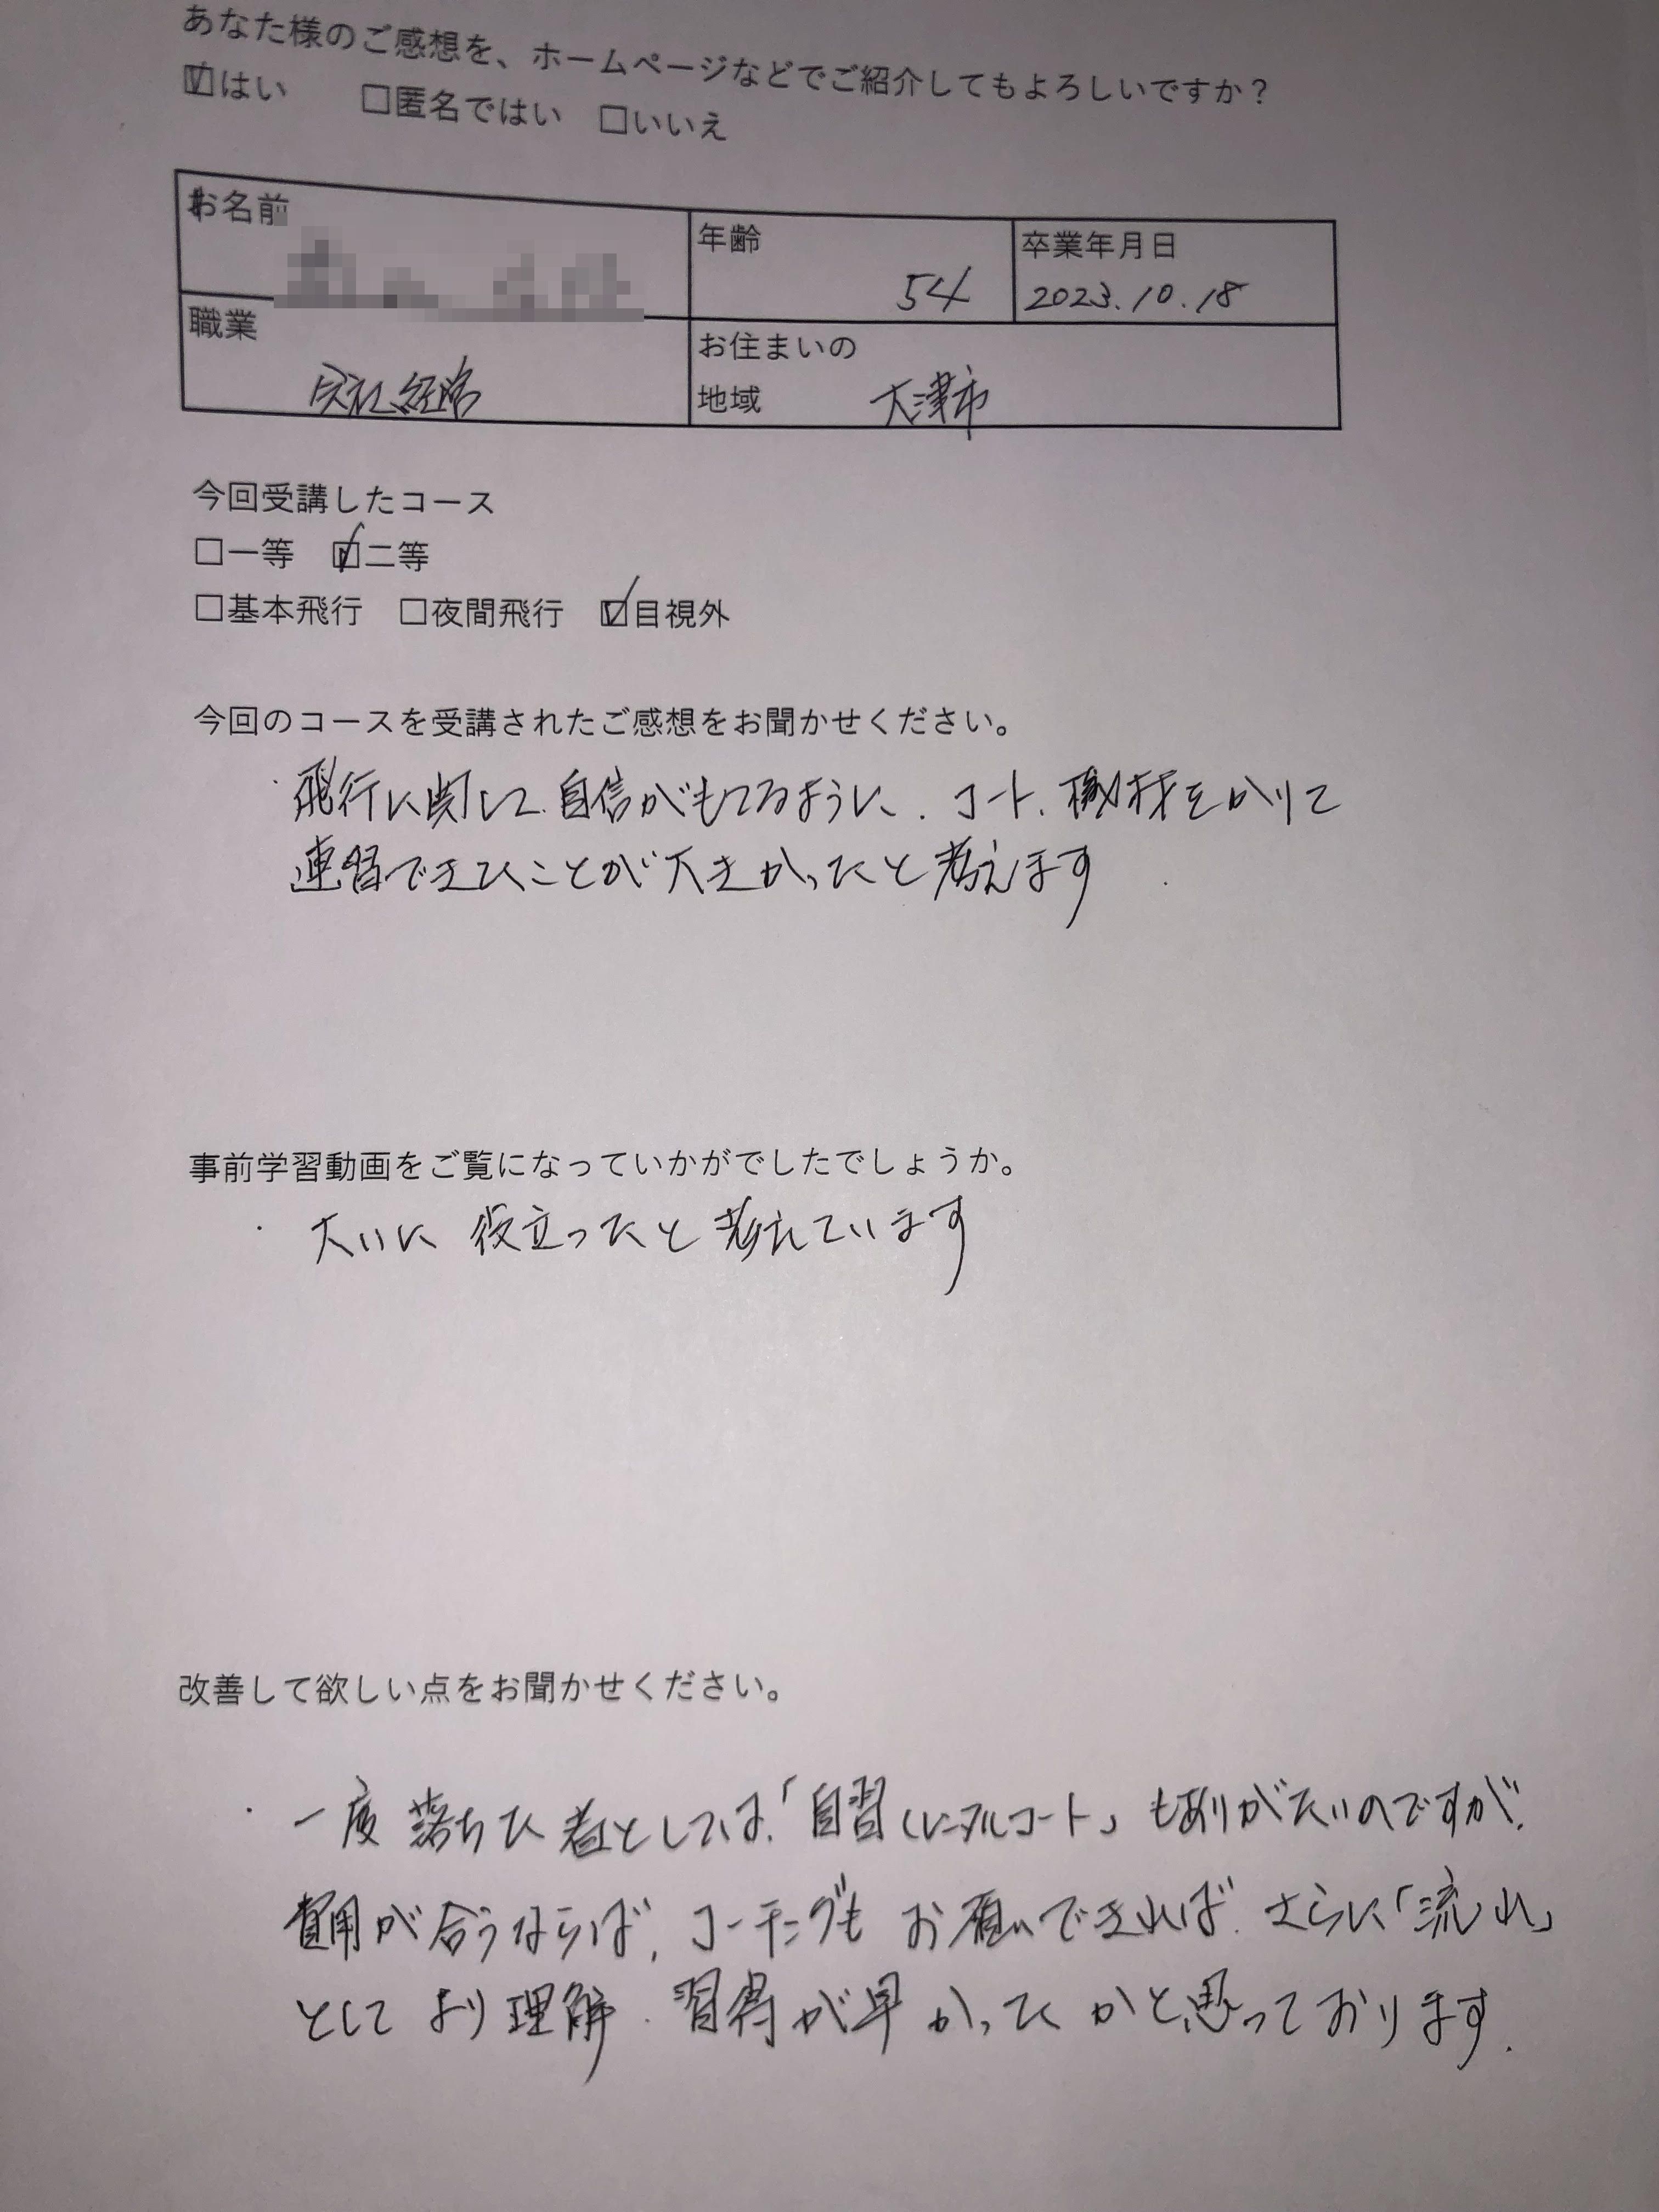 あなた様のご感想を、ホームページなどでご紹介してもよろしいですか？
☑はい　□匿名ではい　□いいえ
お名前
年齢
54
卒業年月日
2023.10.18
職業
会社経営
お住まいの
地域　大津市
今回受講したコース
□一等　☑二等
□基本飛行　□夜間飛行　☑目視外
今回のコースを受講されたご感想をお聞かせください。
・飛行に関して、自信がもてるように、コート、機材をかりて
練習できたことが大きかったと考えます
事前学習動画をご覧になっていかがでしたでしょうか。
・大いに役立ったと考えています
改善して欲しい点をお聞かせください。
・一度落ちた者としては、「自習(レンタルコート」もありがたいのですが、
費用が合うならば、コーチングもお願いできれば、さらに「流れ」
としてより理解、習得が早かったかと思っております。